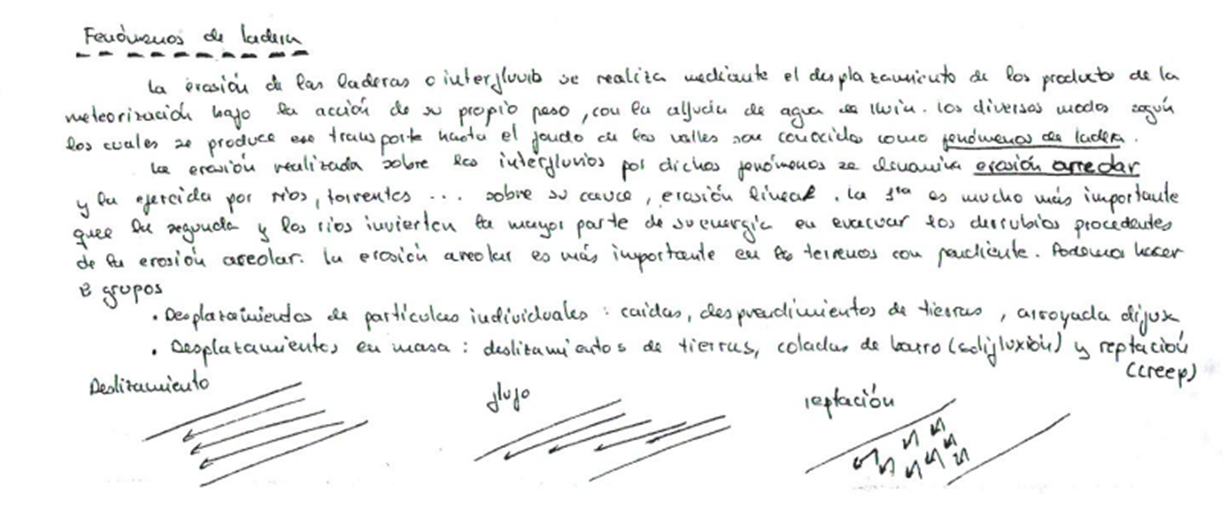 Fenómenos de ladera
La erosión de las laderas o interfluvio se realiza mediante el desplazamiento de los producto de la
meteorización bajo la acción de su propio peso, con la ayuda de agua de lluvia. Los diversos modos según
los cuales se produce ese transporte hasta el fondo de los valles son conocidos como fenómenos de ladera.
La erosión realizada sobre los interfluvios por dichos fenómenos se denomina erosión areolar
y la ejercida por ríos, torrentes ... sobre su cauce, erosión lineal. La 1ra es mucho más importante
que la segunda y los ríos invierten la mayor parte de su energía en evacuar los derrubios procedentes
de la erosión areolar. La erosión areolar es más importante en los terrenos con pendiente. Podemos hacer
2 grupos
• Desplazamientos de partículas individuales: caídas, desprendimientos de tierras, arroyada difusa
• Desplazamientos en masa: deslizamientos de tierras, coladas de barro (solifluxión) y reptación
(creep)
Deslizamiento flujo reptación